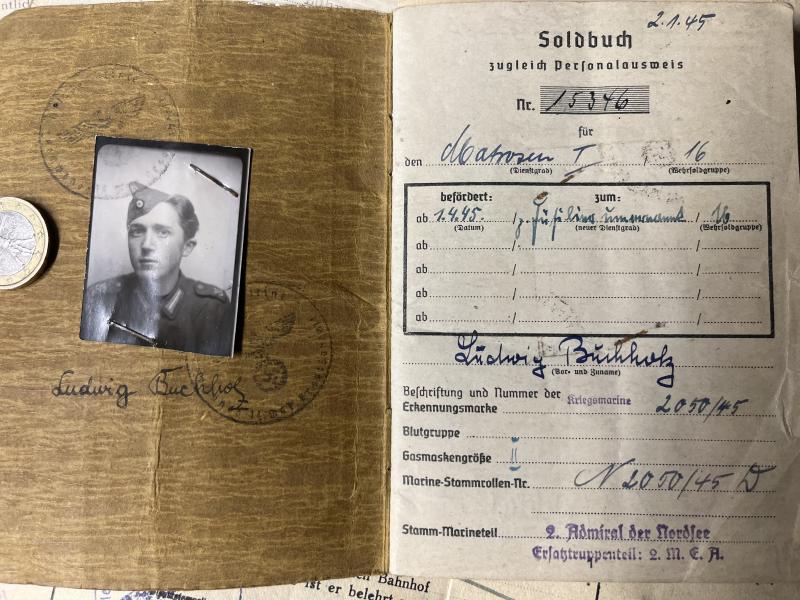 Ludwig Buchholz
2.1.45
Soldbuch
zugleich Personalausweis
Nr. 15346
für
den Matrosen I 16
(Dienstgrad) (Wehrsoldgruppe)
befördert: zum:
ab 1.4.45. / z. Füsilier umernannt / 16
(Datum) (neuer Dienstgrad) (Wehrsoldgruppe)
ab / /
ab / /
ab / /
ab / /
Ludwig Buchholz
(Vor- und Zuname)
Beschriftung und Nummer der
Erkennungsmarke Kriegsmarine 2050/45
Blutgruppe
Gasmaskengröße II
Marine-Stammrollen-Nr. N 2050/45 D
Stamm-Marineteil 2. Admiral der Nordsee
Ersatztruppenteil: 2. M. E. A.
Bahnhof
ist er belehrt